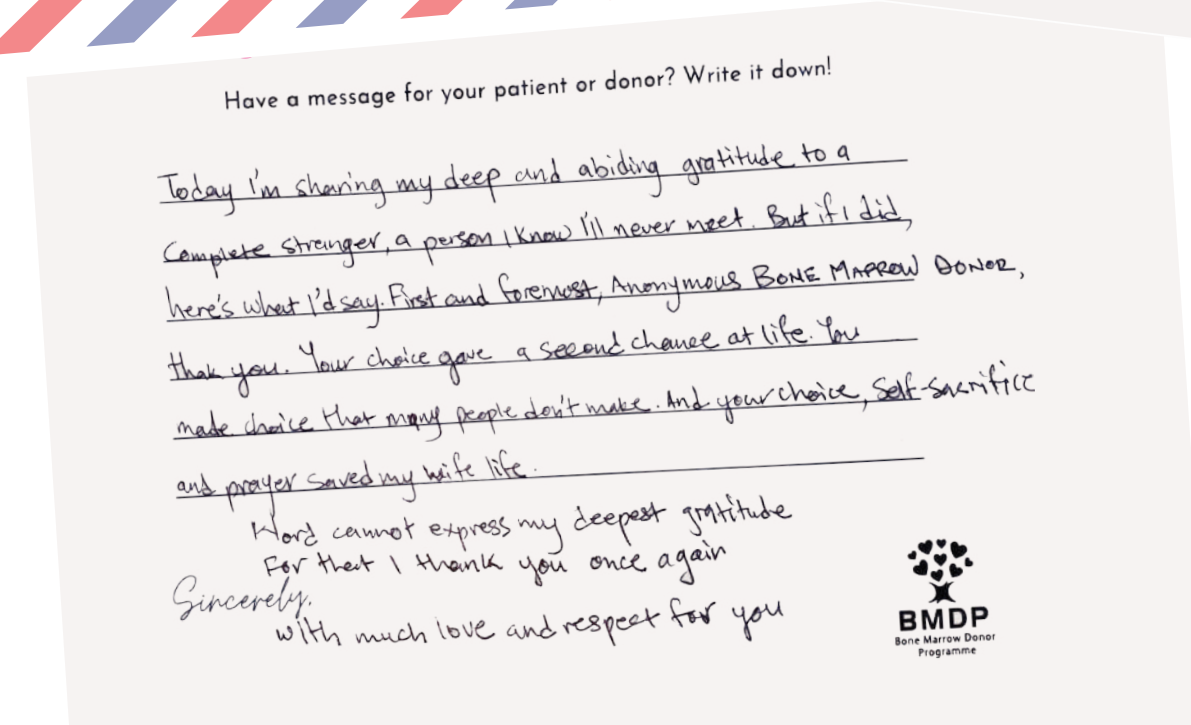 Have a message for your patient or donor? Write it down!
Today I'm sharing my deep and abiding gratitude to a
Complete stranger, a person I know I'll never meet. But if I did,
here's what I'd say. First and foremost, Anonymous BONE MARROW DONOR,
thak you. Your choice gave a second chance at life. You
made choice that many people don't make. And your choice, Self-sacrifice
and prayer saved my wife life.
Word cannot express my deepest gratitude
For that I thank you once again
Sincerely.
with much love and respect for you
BMDP
Bone Marrow Donor
Programme